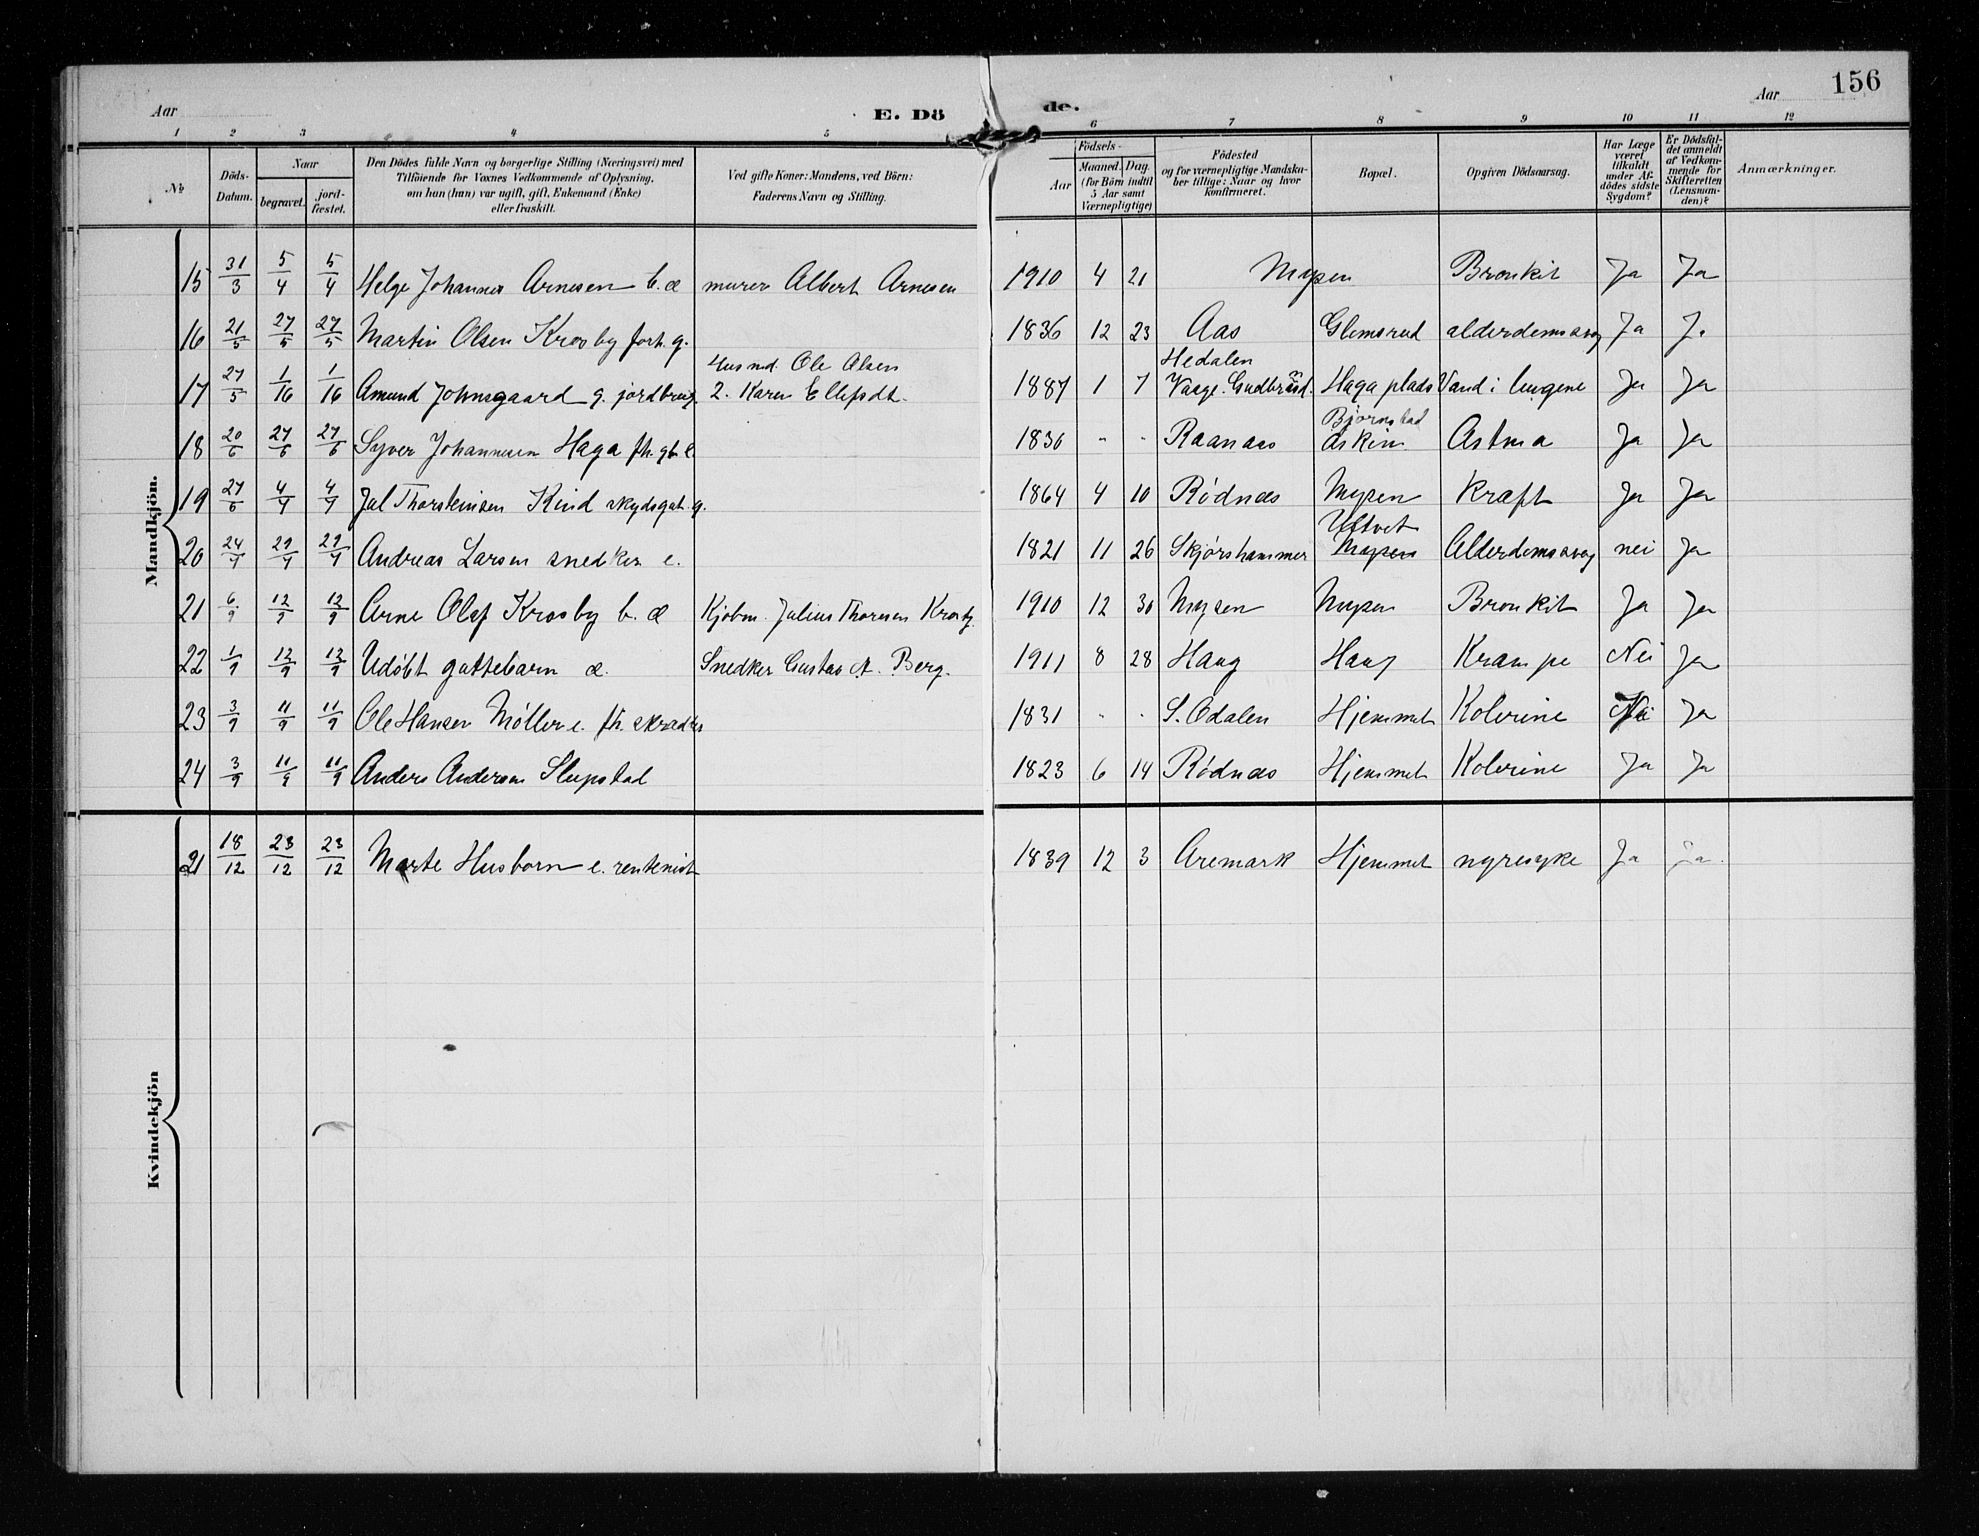 156
Aar
E. Dö
de.
Aar
1 2 3 4 5 6 7 8 9 10 11 12
No
Döds-Datum.
Naar
begravet.
jord-fæstet.
Den Dödes fulde Navn og borgerlige Stilling (Næringsvei) med
Tilföiende for Voxnes Vedkommende af Oplysning,
om hun (han) var ugift, gift, Enkemand (Enke)
eller fraskilt.
Ved gifte Koner: Mandens, ved Börn:
Faderens Navn og Stilling.
Födsels-
Aar
Maaned. Dag.
(for Börn indtil
5 Aar samt
Værnepligtige)
Födested
og for værnepligtige Mandska-
ber tillige: Naar og hvor
konfirmeret.
Bopæl.
Opgiven Dödsaarsag.
Har Læge
været
tilkaldt
under Af-
dödes sidste
Sygdom?
Er Dödsfal-
det anmeldt
af Vedkom-
mende for
Skifteretten
(Lensman-
den)?
Anmærkninger.
Mandkjön.
15 31/3 5/4 5/4 Helge Johannes Arnesen b. æ murer Albert Arnesen 1910 4 21 Mysen Bronkit Ja Ja
16 21/5 27/5 27/5 Martin Olsen Krosby forh. g. 1836 12 23 Aas Glemsrud alderdomssvag Ja J.
Husmd Ole Olsen Hedalen
17 27/5 1/16 1/16 Amund Johnsgaard g. jordbrug. 2. Karen Ellefsdt. 1887 1 7 Vaage. Gudbrasd. Haga plads Vand i lungene Ja Ja
Bjørnstad
18 20/6 27/6 27/6 Syver Johannesen Haga fh. gbr e. 1836 " " Raanaas Askim Astma Ja Ja
19 27/6 4/7 4/7 Jul Thorskinsen Kind skydsgut. g. 1864 4 10 Rødnæs Mysen Kræft Ja Ja
20 24/7 29/7 29/7 Andreas Larsen snedker e. 1821 11 26 Skjørshammer Mysen Alderdomssvag nei Ja
21 6/9 12/9 12/9 Arne Olaf Krosby b. æ Kjøbm. Julius Thorsen Krosby. 1910 12 30 Mysen Mysen Bronkit Ja Ja
22 1/9 12/9 12/9 Udøbt guttebarn æ. Snedker Gustav A. Berg. 1911 8 28 Haug Haug Krampe Nei Ja
23 3/9 11/9 11/9 Ole Hansen Møller e. fh. skrædder 1831 " " S. Odalen Hjemmet Kolerine Nei Ja
24 3/9 11/9 11/9 Anders Andersen Slupstad 1823 6 14 Rødnæs Hjemmet Kolerine Ja Ja
Kvindekjön
21 18/12 23/12 23/12 Marte Husborn e. rentenist 1839 12 3 Aremark Hjemmet nyresyke Ja Ja.